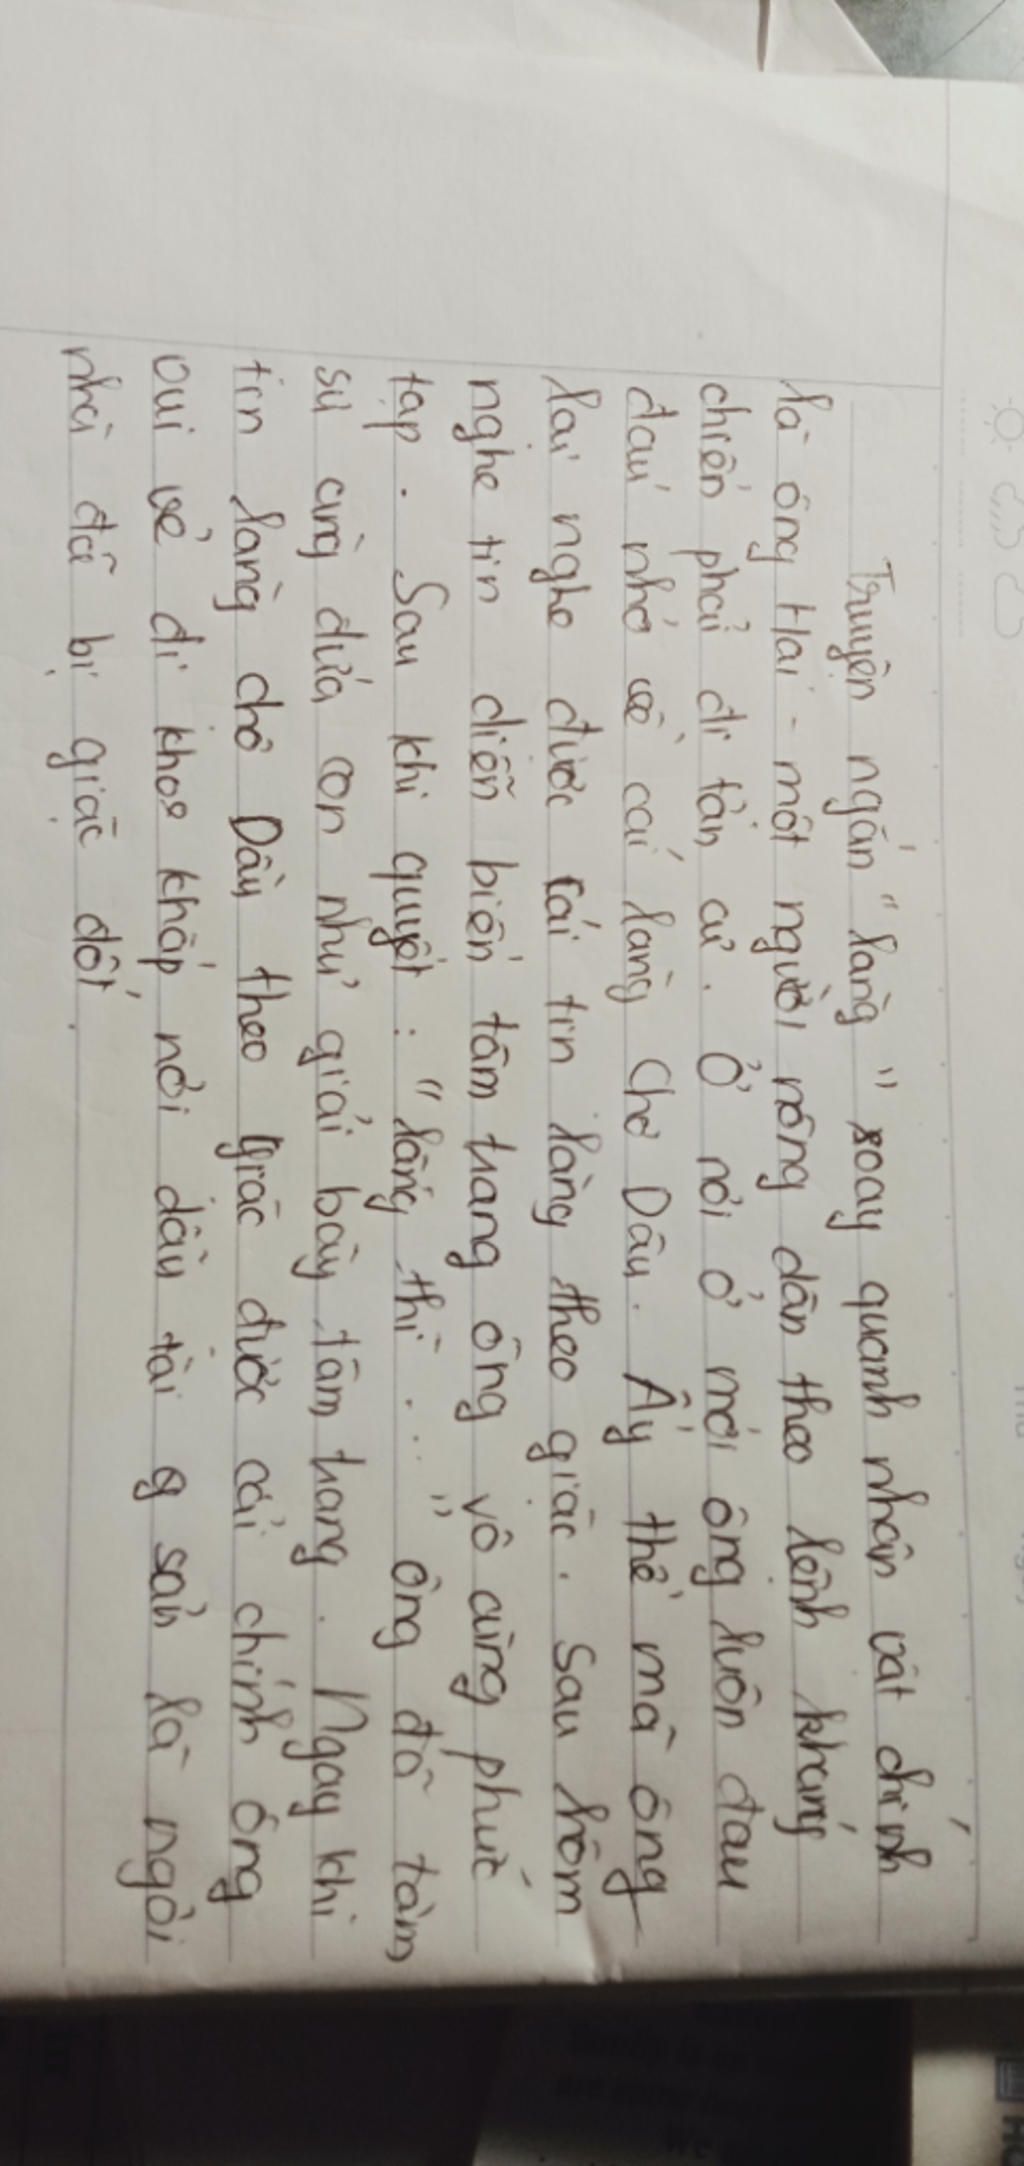 Truyện ngắn "làng" xoay quanh nhân vật chính
là ông Hai - một người nông dân theo lệnh kháng
chiến phải đi tản cư. Ở nơi ở mới ông luôn đau
đáu nhớ về cái làng Chợ Dầu. Ấy thế mà ông
lại nghe được cái tin làng theo giặc. Sau hôm
nghe tin diễn biến tâm trạng ông vô cùng phức
tạp. Sau khi quyết: "làng thì ..." ông đã tâm
sự cùng đứa con như giải bày tâm trạng. Ngay khi
tin làng chợ Dầu theo giặc được cải chính ông
vui vẻ đi khoe khắp nơi dẫu tài sản là ngôi
nhà đã bị giặc đốt.